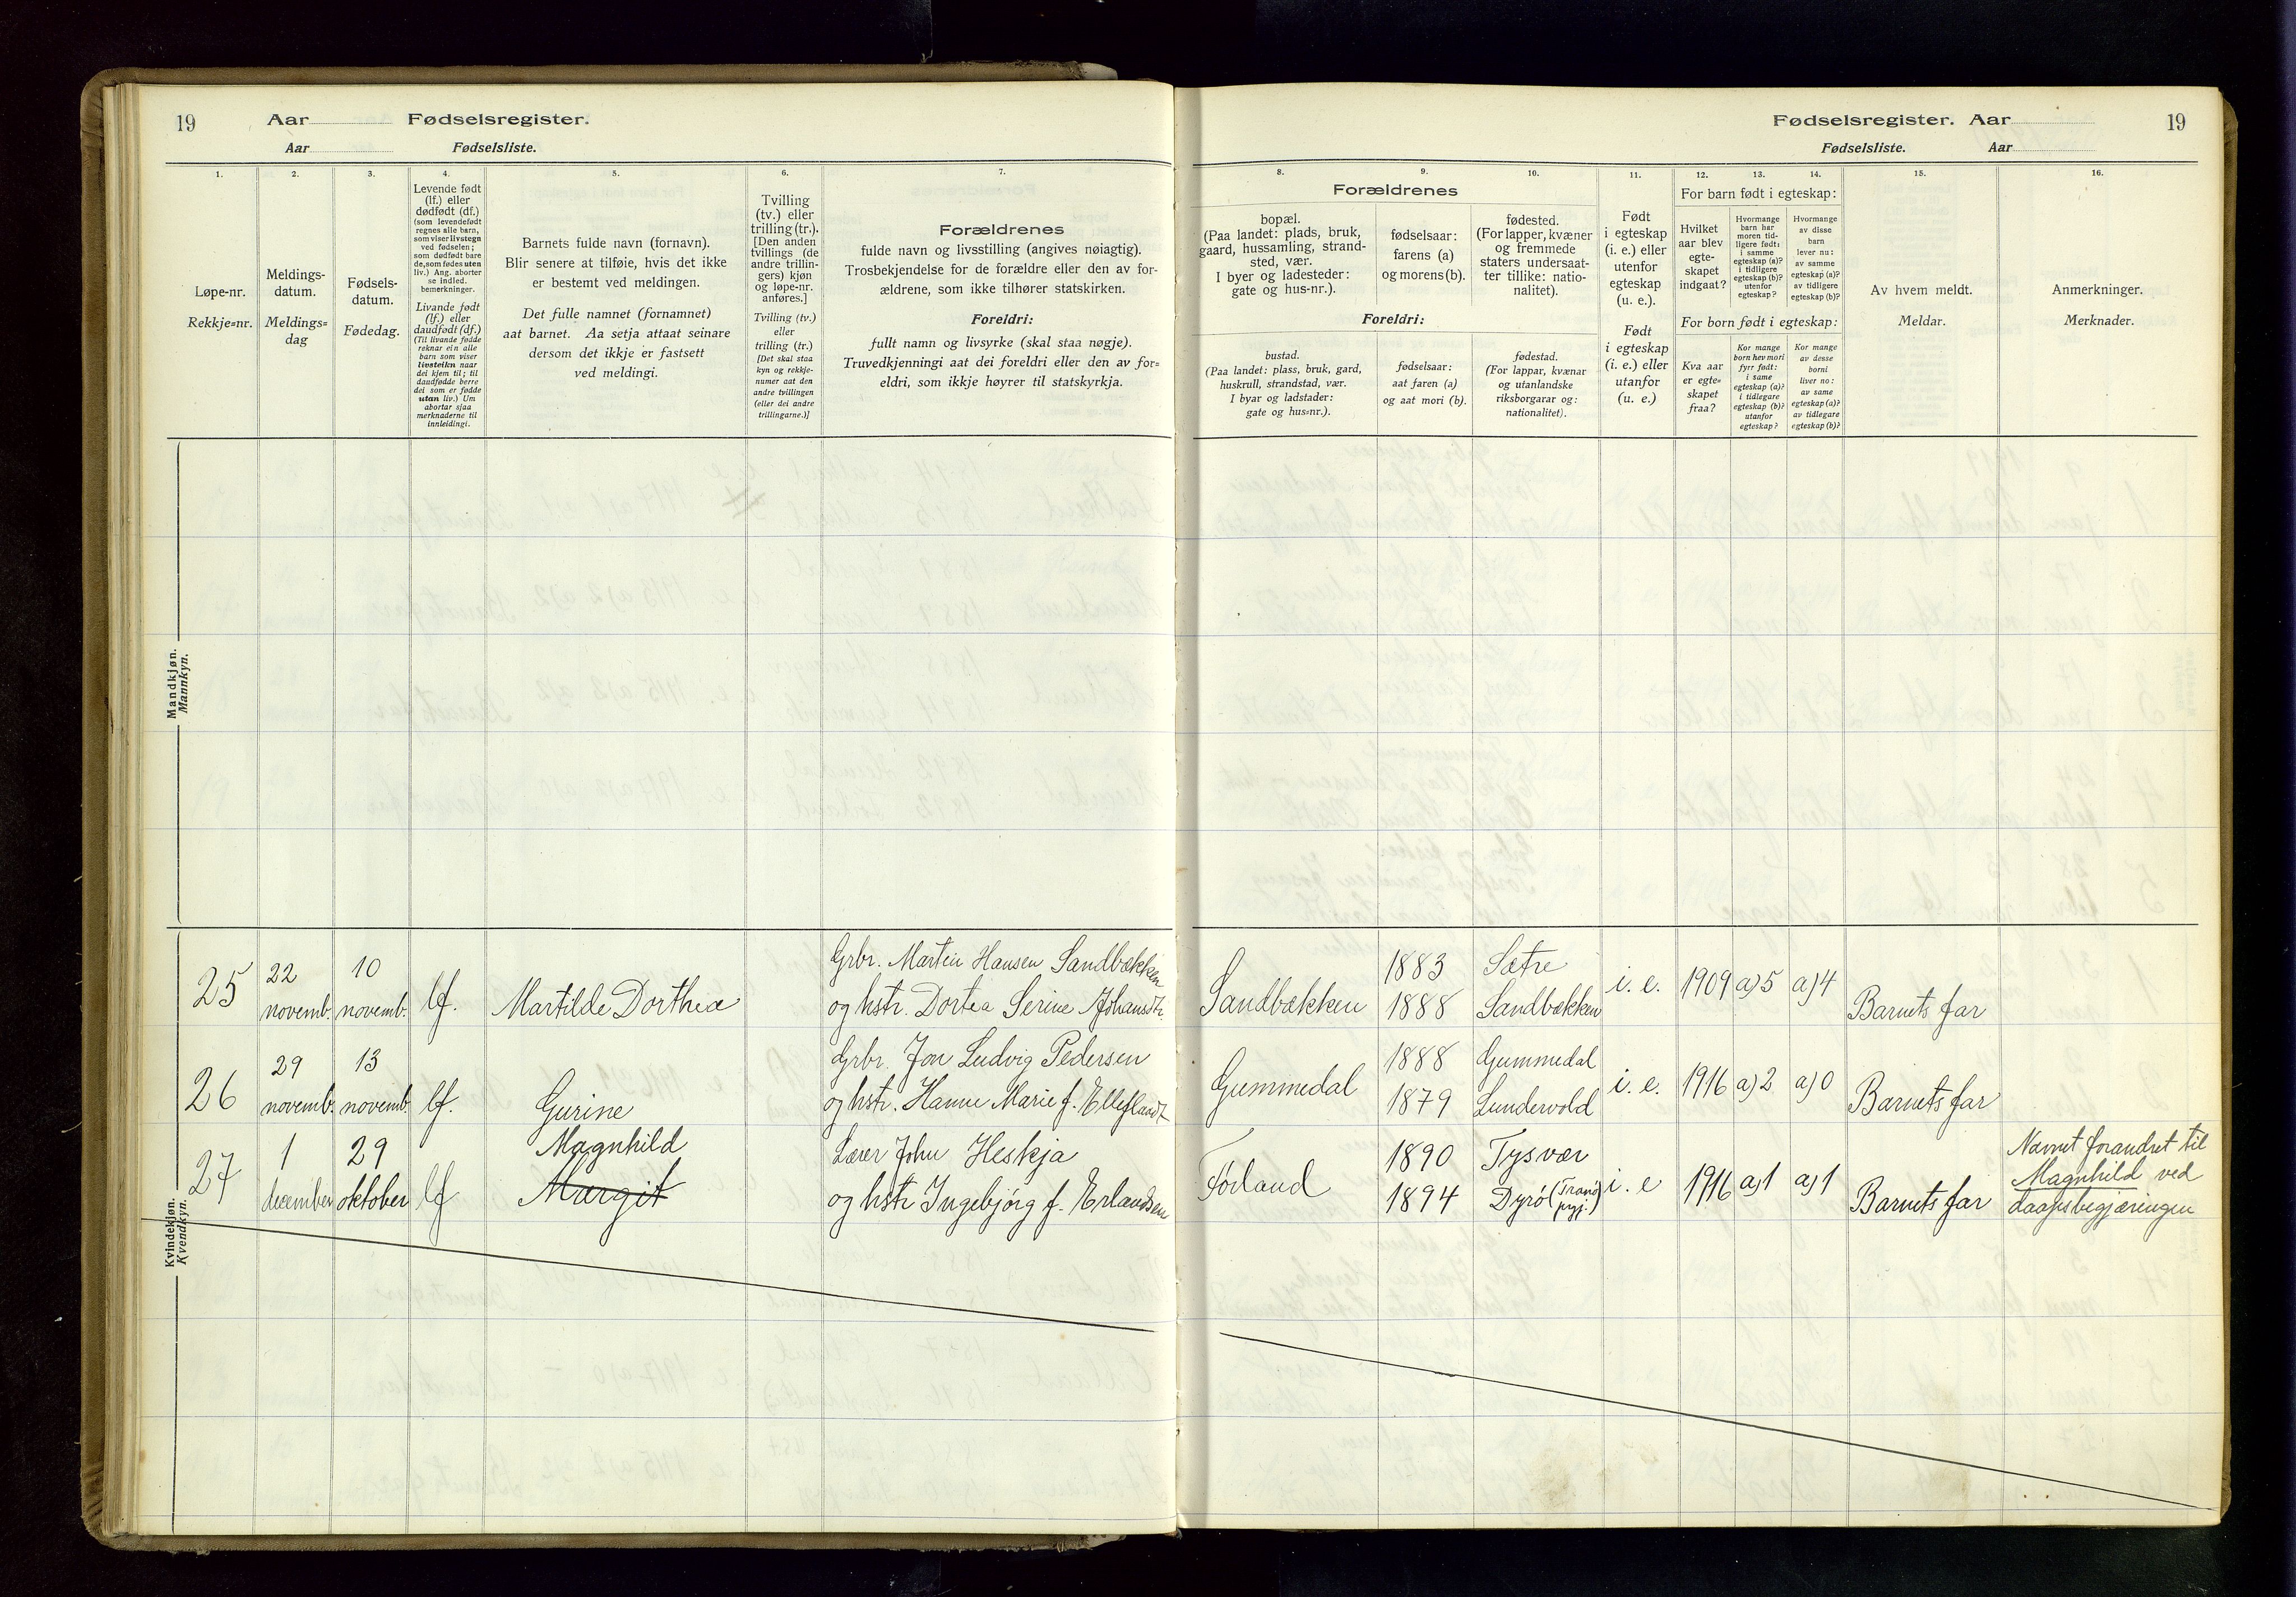 19 Aar Fødselsregister.
Aar Fødselsliste.
1.
2.
3.
4.
5.
6.
7.
Løpe-nr.
Rekkje-nr.
Meldings-
datum.
Meldings-
dag
Fødsels-
datum.
Fødedag.
Levende født
(lf.) eller
dødfødt (df.)
(som levendefødt
regnes alle barn,
som viser livstegn
ved fødselen;
som dødfødt bare
de, som fødes uten
liv.) Ang. aborter
se indled.
bemerkninger.
Livande født
(lf.) eller
daudfødt (df.)
(Til livande fødde
reknar ein alle
barn som viser
livsteikn naar
dei kjem til; til
daudfødde berre
dei som er fødde
utan liv.) Um
abortar sjaa
merknaderne til
innleidingi.
Barnets fulde navn (fornavn).
Blir senere at tilføie, hvis det ikke
er bestemt ved meldingen.
Det fulle namnet (fornamnet)
aat barnet. Aa setja attaat seinare
dersom det ikkje er fastsett
ved meldingi.
Tvilling
(tv.) eller
trilling (tr.).
[Den anden
tvillings (de
andre trillin-
gers) kjøn
og løpe-nr.
anføres.]
Tvilling (tv.)
eller
trilling (tr.)
[Det skal staa
kyn og rekkje-
numer aat den
andre tvillingen
(eller dei andre
trillingarne.)]
Forældrenes
fulde navn og livsstilling (angives nøiagtig).
Trosbekjendelse for de forældre eller den av for-
ældrene, som ikke tilhører statskirken.
Foreldri:
fullt namn og livsyrke (skal staa nøgje).
Truvedkjenningi aat dei foreldri eller den av for-
eldri, som ikkje høyrer til statskyrkja.
Mandkjøn.
Mannkyn.
25
22
novemb.
10
novemb.
lf.
Martilde Dorthea
Grbr. Martin Hansen Sandbækken
og hstr. Dortea Serine Johansdtr.
26
29
novemb.
13
novemb.
lf.
Gurine
Grbr. Jon Ludvig Pedersen
og hstr. Hanne Marie f.
27
1
december
29
oktober
lf
Magnhild
Margit
Lærer John Heskja
og hstr Ingebjørg f. Erlandsen
Kvindekjøn.
Kvendkyn.
Fødselsregister. Aar 19
Fødselsliste. Aar
8.
9.
10.
11.
12.
13.
14.
15.
16.
Forældrenes
bopæl.
(Paa landet: plads, bruk,
gaard, hussamling, strand-
sted, vær.
I byer og ladesteder:
gate og hus-nr.).
fødselsaar:
farens (a)
og morens (b).
fødested.
(For lapper, kvæner
og fremmede
staters undersaat-
ter tillike: natio-
nalitet).
Foreldri:
bustad.
(Paa landet: plass, bruk, gard,
huskrull, strandstad, vær.
I byar og ladstader:
gate og hus-nr.).
fødselsaar:
aat faren (a)
og aat mori (b).
fødestad.
(For lappar, kvænar
og utanlandske
riksborgarar og:
nationalitet).
Født
i egteskap
(i. e.) eller
utenfor
egteskap
(u. e.).
Født
i egteskap
(i. e.) eller
utanfor
(u. e.)
For barn født i egteskap:
Hvilket
aar blev
egte-
skapet
indgaat?
Hvormange
barn har
moren tid-
ligere født:
i samme
egteskap (a)?
i tidligere
egteskap (b)?
utenfor
egteskap?
Hvormange
av disse
barn
lever nu:
av samme
egteskap (a)?
av tidligere
egteskap (b)?
For born født i egteskap:
Kva aar
er egte-
skapet
fraa?
Kor mange
born hev mori
fyrr født:
i same
egteskap (a)?
i tidlegare
egteskap (b)?
utanfor
egteskap?
Kor mange
av desse
borni
liver no:
av same
egteskap (a)?
av tidlegare
egteskap (b)?
Av hvem meldt.
Meldar.
Anmerkninger.
Merknader.
Sandbækken
1883
1888
Sætre
Sandbækken
i. e.
1909
a) 5
a) 4
Barnets far
Gummedal
1888
1879
Gummedal
Lundevold
i. e.
1916
a) 2
a) 0
Barnets far
Førland
1890
1894
Tysvær
Dyrö (Tranö prgj.)
i. e
1916
a) 1
a) 1
Barnets far
Navnet forandret til
Magnhild ved
daapsbegjæringen